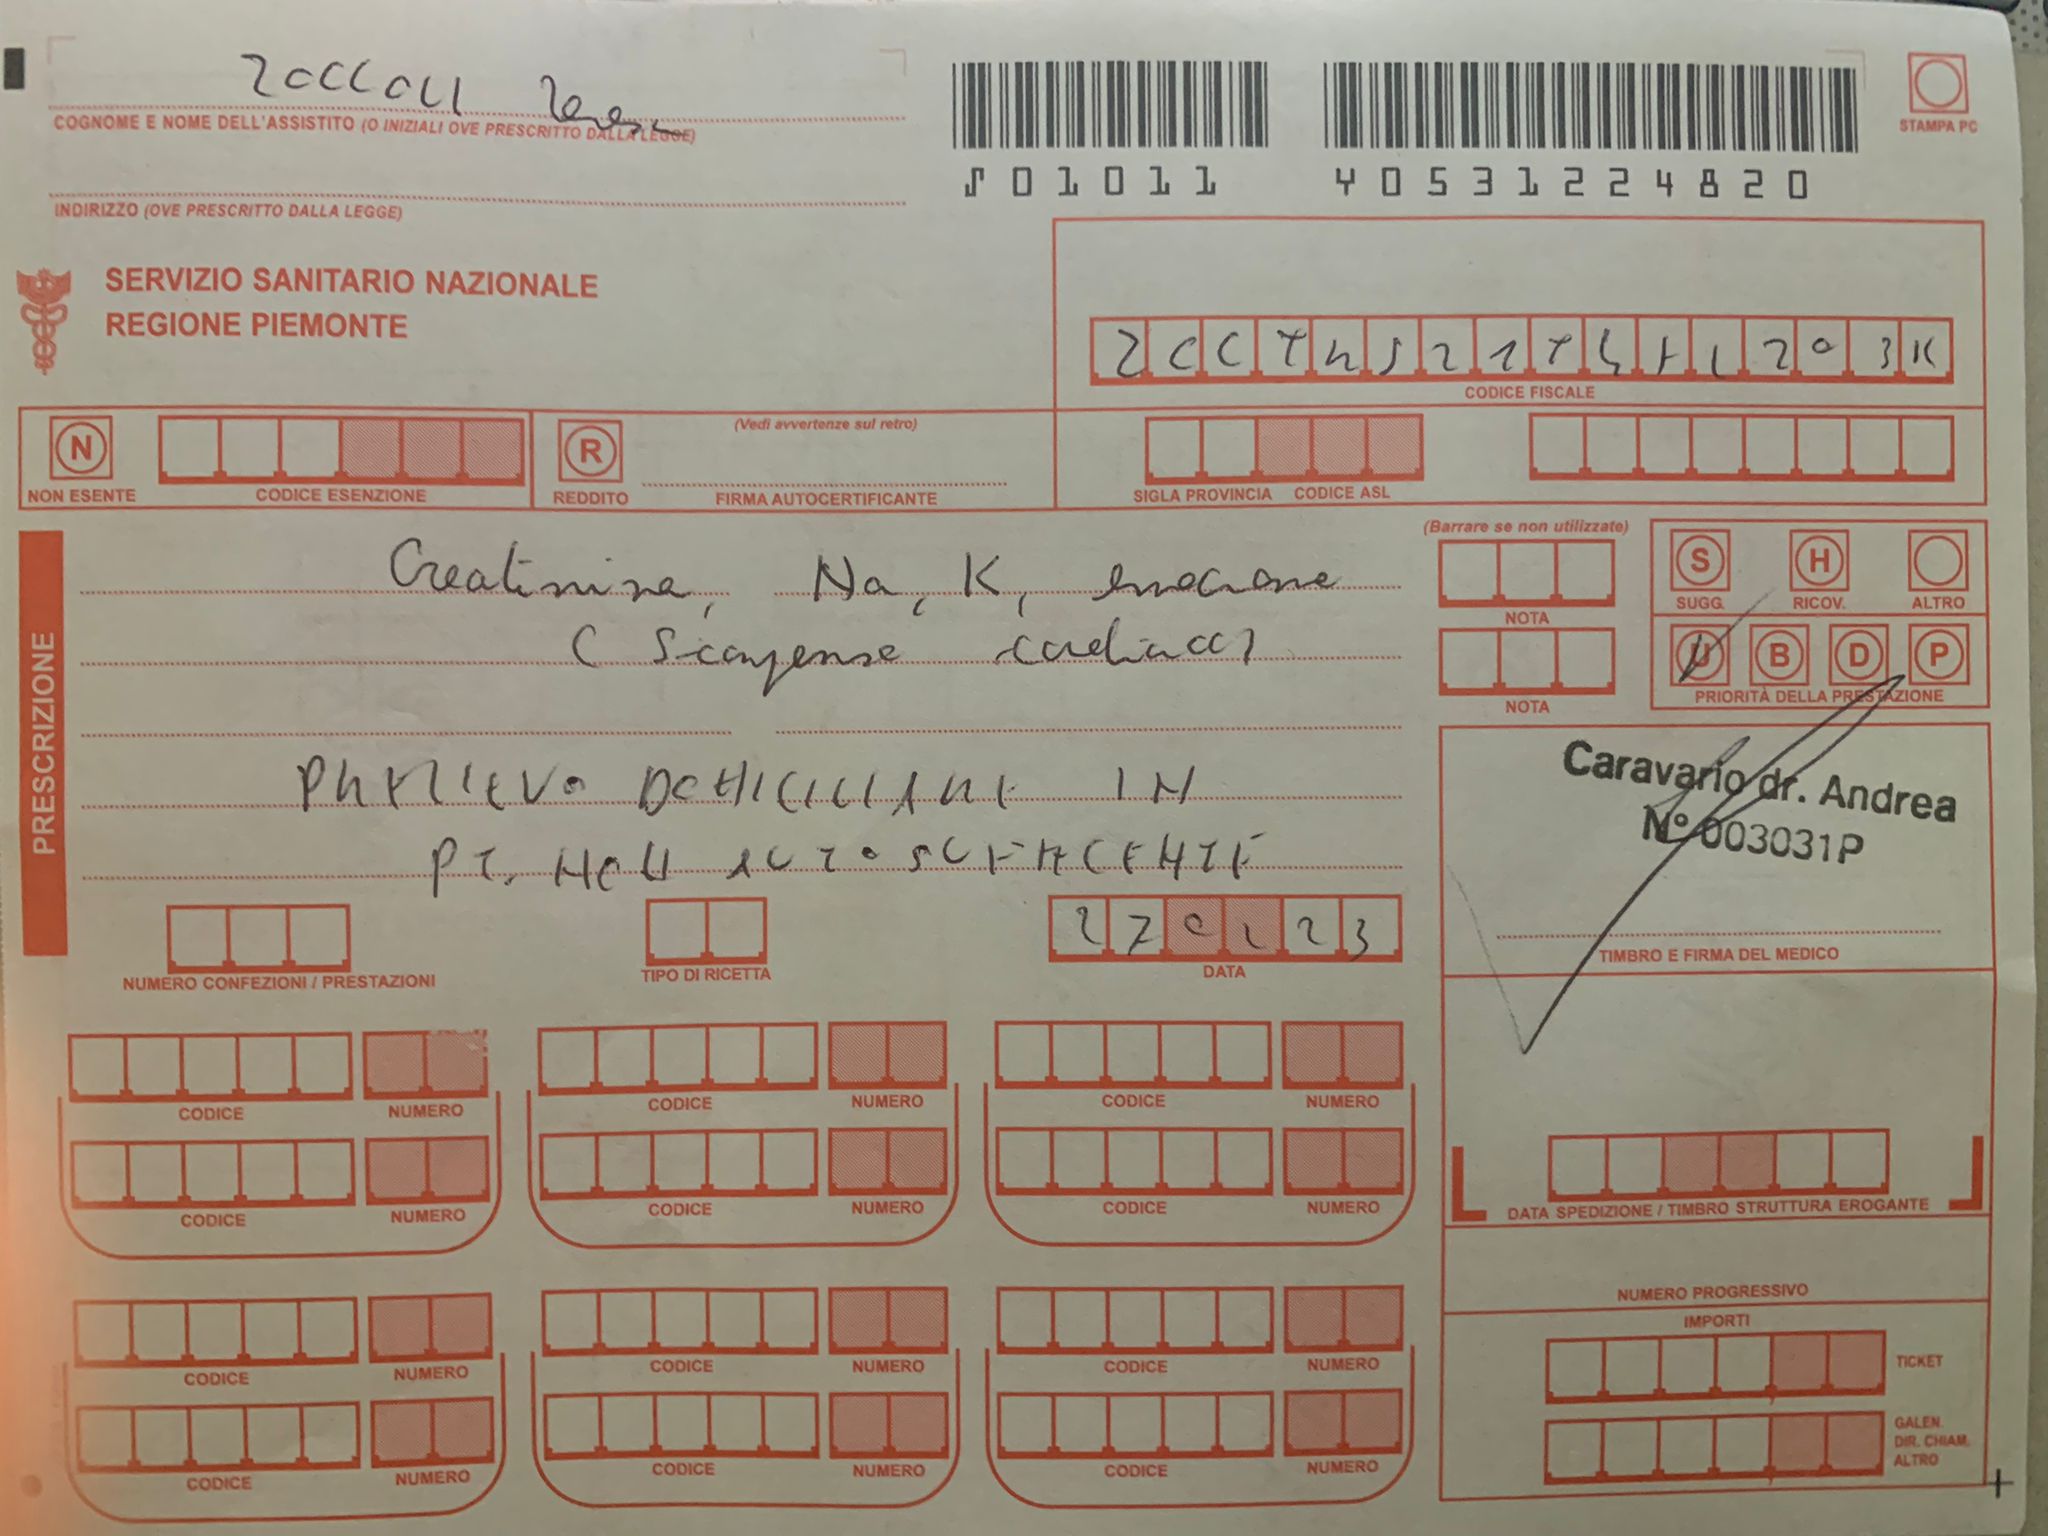 ZOCCOLI Teresa
COGNOME E NOME DELL'ASSISTITO (O INIZIALI OVE PRESCRITTO DALLA LEGGE)
INDIRIZZO (OVE PRESCRITTO DALLA LEGGE)
S01011
Y0531224820
STAMPA PC
SERVIZIO SANITARIO NAZIONALE
REGIONE PIEMONTE
CODICE FISCALE
N
NON ESENTE
CODICE ESENZIONE
R
REDDITO
(Vedi avvertenze sul retro)
FIRMA AUTOCERTIFICANTE
SIGLA PROVINCIA CODICE ASL
PRESCRIZIONE
Creatinina, Na, K, emocromo
( Scompenso cardiaco)
PRELIEVO DOMICILIARE IN
PZ. NON AUTOSUFFICIENTE
(Barrare se non utilizzate)
NOTA
NOTA
S H
SUGG. RICOV. ALTRO
U B D P
PRIORITÀ DELLA PRESTAZIONE
Caravario dr. Andrea
N° 003031P
TIMBRO E FIRMA DEL MEDICO
NUMERO CONFEZIONI / PRESTAZIONI
TIPO DI RICETTA
270223
DATA
CODICE NUMERO CODICE NUMERO CODICE NUMERO
CODICE NUMERO CODICE NUMERO CODICE NUMERO
DATA SPEDIZIONE / TIMBRO STRUTTURA EROGANTE
NUMERO PROGRESSIVO
IMPORTI
CODICE NUMERO CODICE NUMERO CODICE NUMERO
TICKET
CODICE NUMERO CODICE NUMERO CODICE NUMERO
GALEN.
DIR. CHIAM.
ALTRO